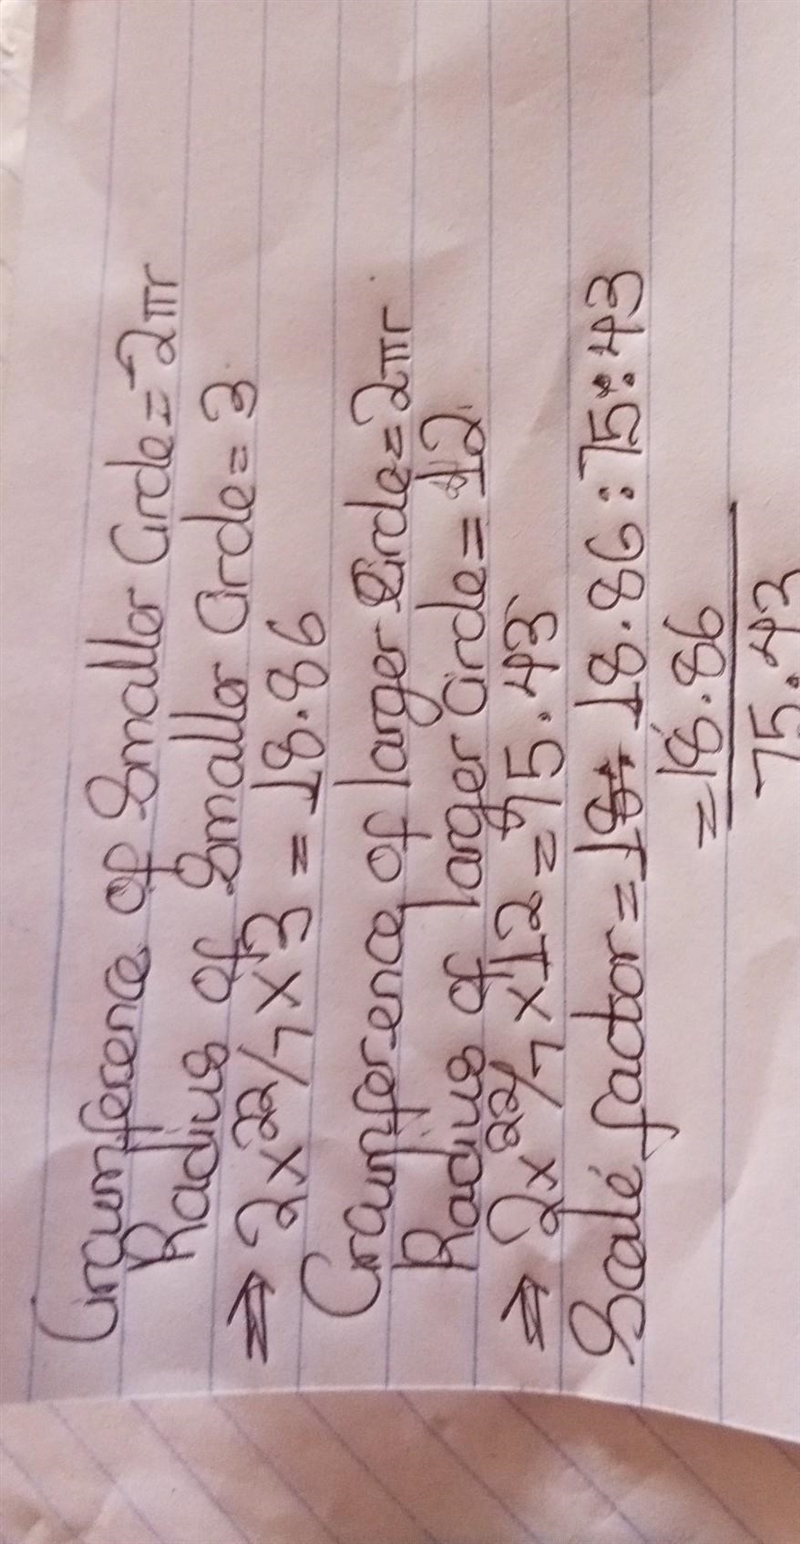 Circumference of Smaller Circle = 2πr
Radius of Smaller Circle = 3
⇒ 2 x 22/7 x 3 = 18.86
Circumference of larger Circle = 2πr
Radius of larger Circle = 12
⇒ 2 x 22/7 x 12 = 75.43
Scale factor = 18.86 : 75.43
= 18.86
75.43